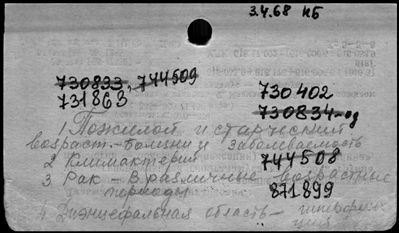 3.4.68 КБ
730833, 744509
731863
730402
730834-од
1 Пожилой и старческий
возраст - болезни и заболеваемость
2 Климактерий
744508
3 Рак - в различные возрастные
периоды
871899
4 Диэнцефальная область -